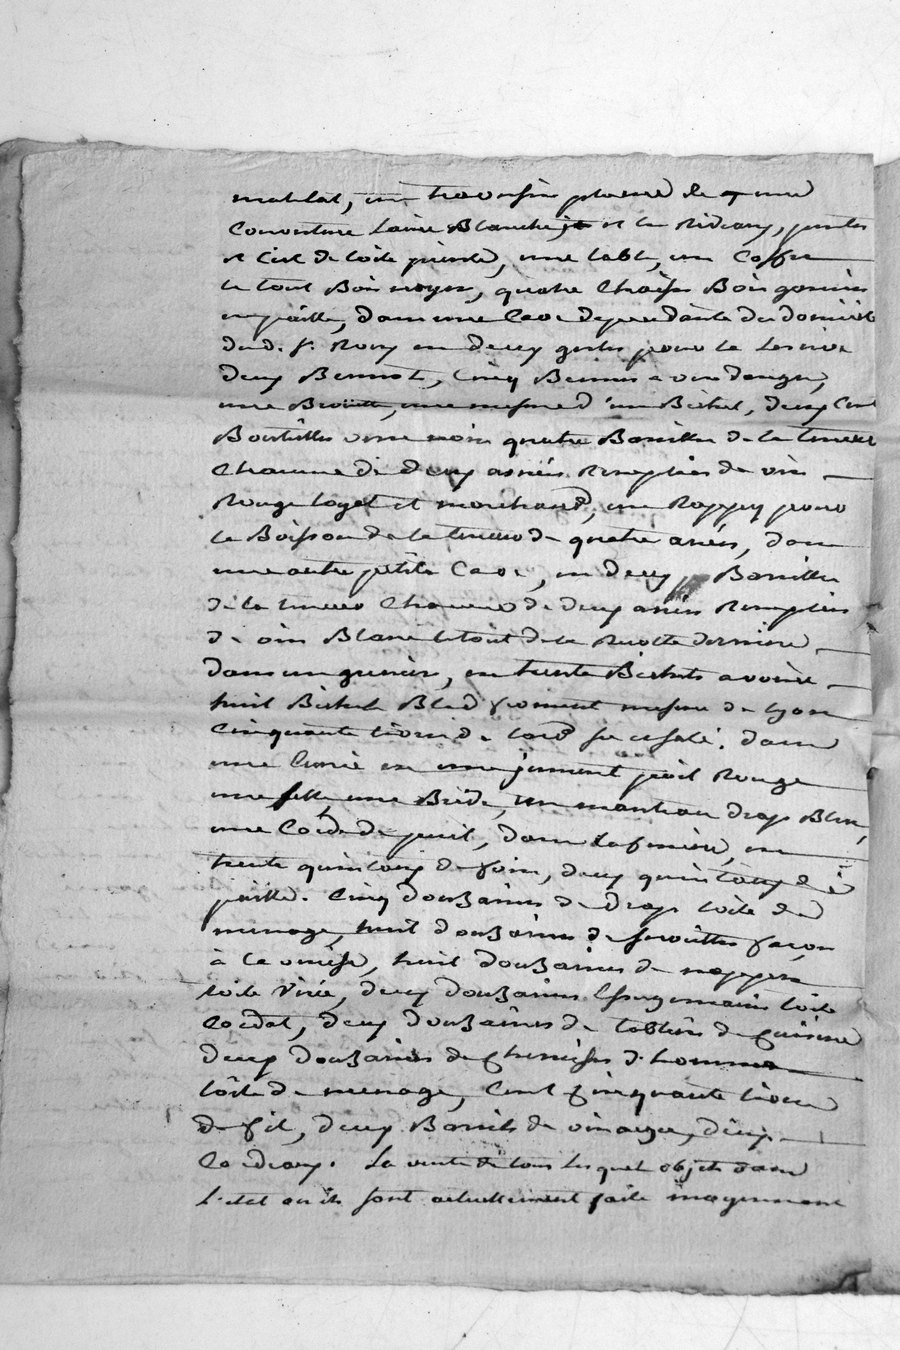 matelat, un traversin plume de une
Couverture Laine Blanche, et les Rideaux, pentes
et Ciel de toile peinte, une table, un Coffre
le tout Bois noyer, quatre Chaises Bois garnies
en paille, dans une Cave dependante du domicile
du d. s. Rony en deux
deux Bennot, Cinq Bennes a vendanger,
une mesure d'un Bichet, deux Cent
Bouteilles verre noir quatre Barrilles de la teneur
Chacune de deux anées Remplies de vin
Rouge loyal et marchand, un Rappey pour
la Boisson de la teneur de quatre anées, dans
une autre petite Cave, en deux Barrilles
de la teneur Chacune de deux anées Remplies
de vin Blanc le tout de la Recolte derniere,
dans un grenier, en trente Bichets avoine
huit Bichets Bled froment mesure de Lyon
Cinquante livres de lard salé. dans
une Curie en une jument poil Rouge
une selle, une Bride, un manteau drap Bleu,
une Corde de puit, dans la feniere, en
trente quintaux de foin, deux quintaux de
paille. Cinq douzaines de Drap toile de
menage, huit douzaines de serviettes façon
à la venise, huit douzaines de nappes
toile Virée, deux douzaines Essuyemains toile
Cordat, deux douzaines de tabliers de Cuisine
deux douzaines de Chemises d'hommes
toile de menage, Cent Cinquante livres
de fil, deux Barrils de vinaigre, deux
Cordeaux. La vente de tous lesquel objets dans
L'etat ou ils sont actuellement faite moyennant